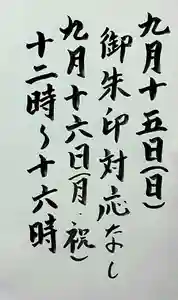 九月十五日(日)
御朱印対応なし
九月十六日(月・祝)
十二時〜十六時